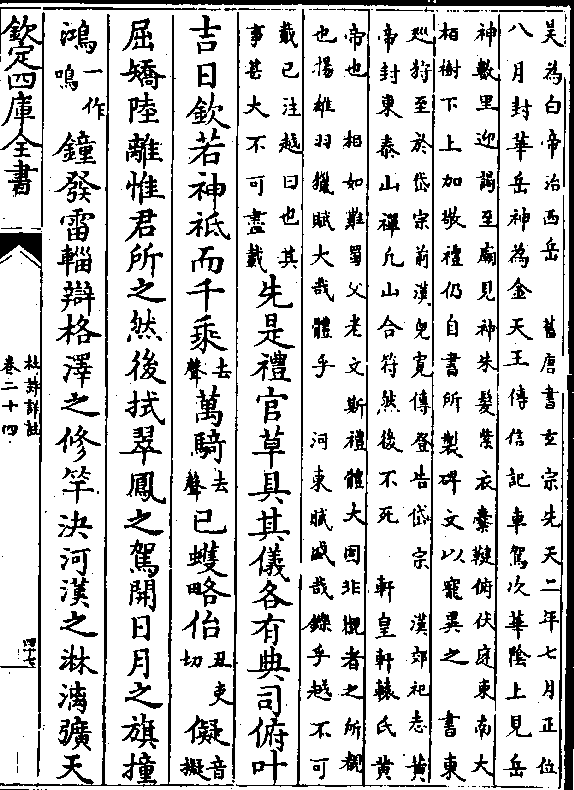 昊為白帝治西岳　舊唐書玄宗先天二年七月正位
八月封華岳神為金天王傳信記車駕次華陰上見岳
神數里迎謁至廟見神朱髮紫衣櫜鞬俯伏庭東南大
栢樹下上加敬禮仍自書所製碑文以寵異之　書東
廵狩至於岱宗前漢兒寛傳登告岱宗　漢郊祀志黄
帝封東泰山禪凡山合符然後不死　軒皇軒轅氏黄
帝也　相如難蜀父老文斯禮體大固非觀者之所覩
也揚雄羽獵賦大哉體乎　河東賦盛哉鑠乎越不可
載已注越曰也其
事甚大不可盡載
先是禮官草具其儀各有典司俯叶
吉日欽若神祇而千乘去聲萬騎去聲已蠖略佁丑吏切儗音擬
屈矯陸離惟君所之然後拭翠鳳之駕開日月之旗撞
鴻一作鳴鐘發雷輜辯格澤之修竿決河漢之淋漓彍天
欽定四庫全書
杜詩詳註
卷二十四
四十七